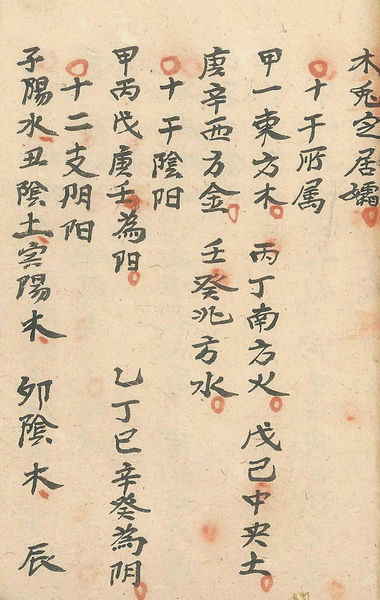 木兎安居孀
十干所属
甲一東方木 丙丁南方火 戊己中央土
庚辛西方金 壬癸兆方水
十干陰阳
甲丙戊庚壬為阳 乙丁巳辛癸為阴
十二支阴阳
子陽水丑陰土寅陽木 卯陰木 辰